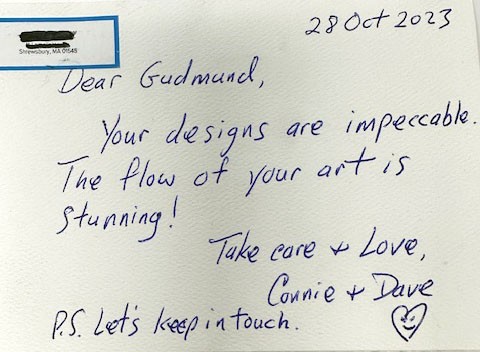 28 Oct 2023
Shrewsbury, MA 01545
Dear Gudmund,
Your designs are impeccable.
The flow of your art is
stunning!
Take care + Love,
Connie + Dave
P.S. Let's keep in touch.